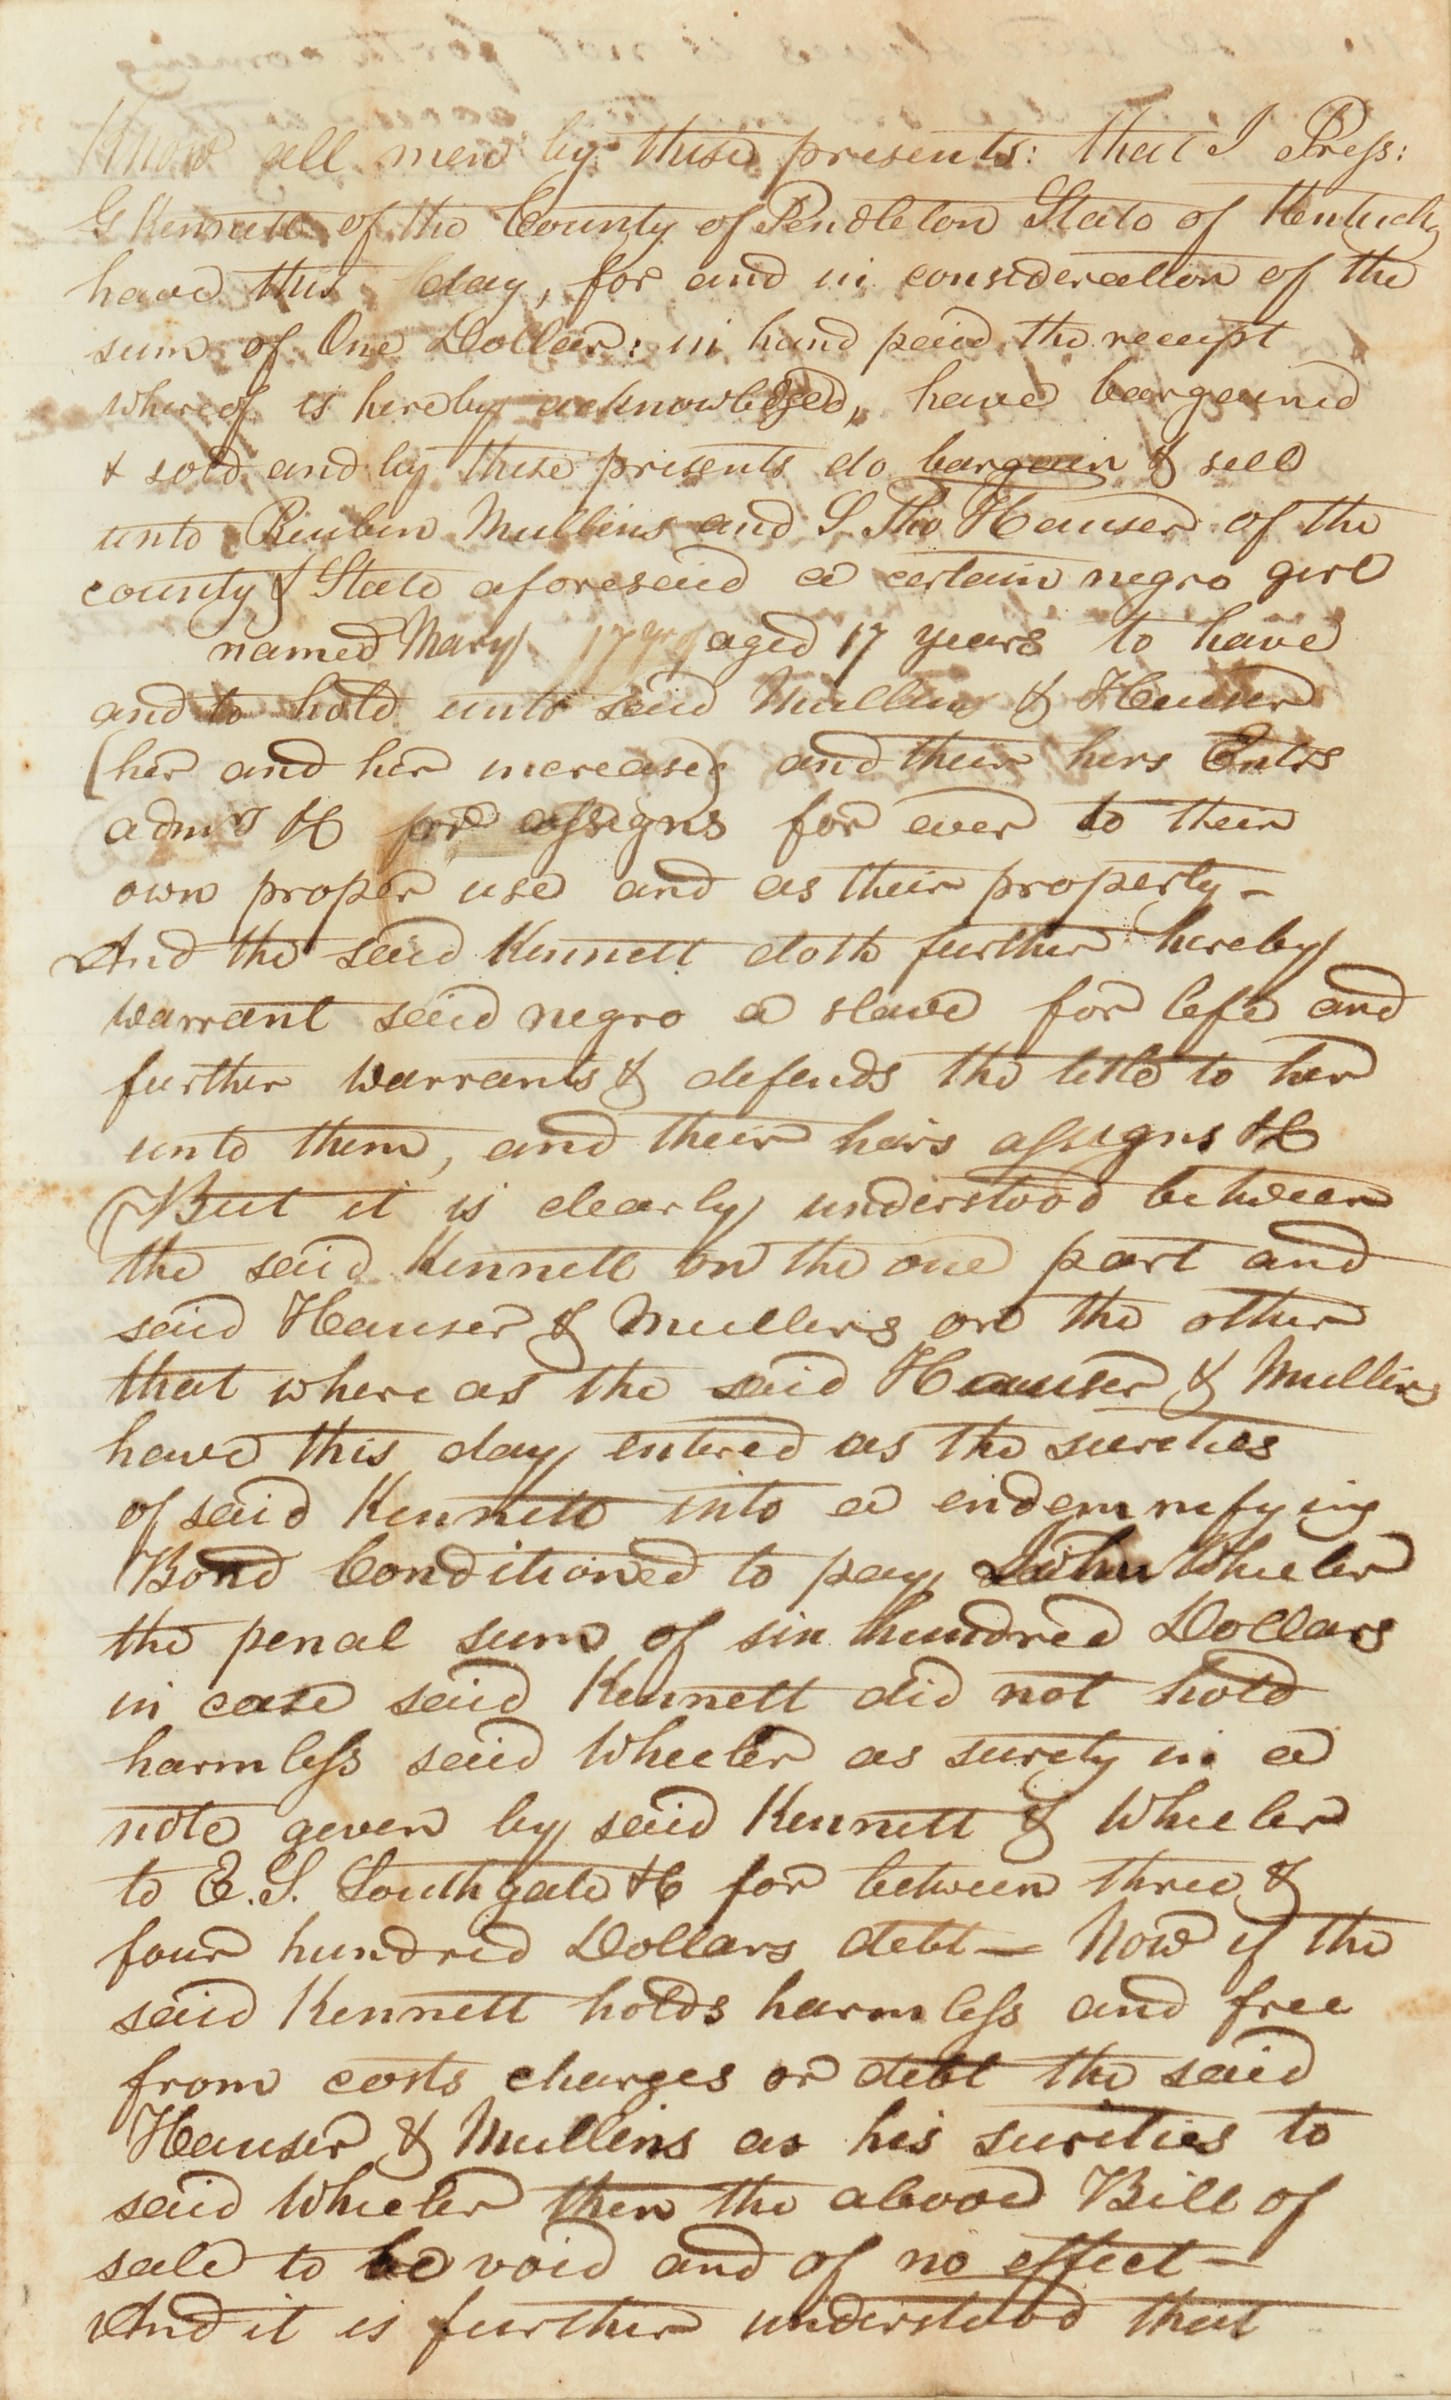 Know all men by these presents: that I Press:
G Kennett of the County of Pendleton State of Kentucky
have this day, for and in consideration of the
sum of One Dollar: in hand paid the receipt
whereof is hereby acknowledged, have bargained
& sold and by these presents do bargain & sell
unto Reuben Mullins and S. Tho Hauser of the
county & State aforesaid a certain negro girl
named Mary aged 17 years to have
and to hold unto said Mullins & Hauser
(her and her increase) and their hirs
admrs &c assigns for ever to their
own proper use and as their property –
And the said Kennett doth further hereby
warrant said negro a slave for life and
further warrants & defends the title to her
unto them, and their heirs assigns &c
(But it is clearly understood between
the said Kennett on the one part and
said Hauser & Mullins on the other
that where as the said Hauser & Mullins
have this day entered as the sureties
of said Kennett into a endemnifying
Bond Conditioned to pay John Wheeler
the penal sum of six hundred Dollars
in case said Kennett did not hold
harmless said Wheeler as surety in a
note given by said Kennett & Wheeler
to E. S. Southgate &c for between three &
four hundred Dollars debt — Now if the
said Kennett holds harmless and free
from costs charges or debt the said
Hauser & Mullins as his sureties to
said Wheeler then the above Bill of
sale to be void and of no effect —
And it is further understood that